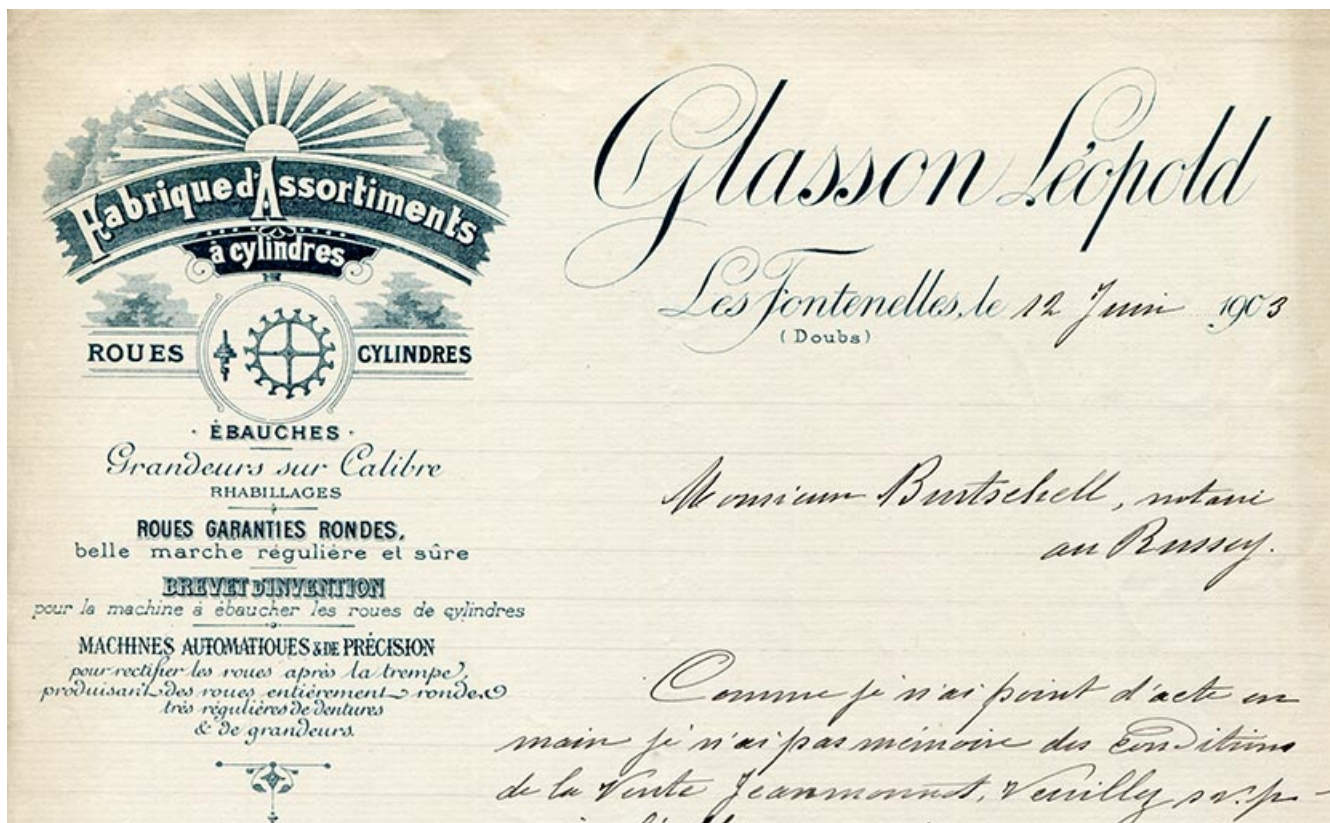 Fabrique d'Assortiments
à cylindres
ROUES CYLINDRES
· ÉBAUCHES ·
Grandeurs sur Calibre
RHABILLAGES
ROUES GARANTIES RONDES,
belle marche régulière et sûre
BREVET D'INVENTION
pour la machine à ébaucher les roues de cylindres
MACHINES AUTOMATIQUES & DE PRÉCISION
pour rectifier les roues après la trempe,
produisant des roues entièrement rondes
très régulières de dentures
& de grandeurs.
Glasson Léopold
Les Fontenelles, le 12 Juin 1903
(Doubs)
Monsieur Burtschell, notaire
au Russey.
Comme je n'ai point d'acte en
main je n'ai pas mémoire des Conditions
de la Vente Jeanmonnot, Veuillez